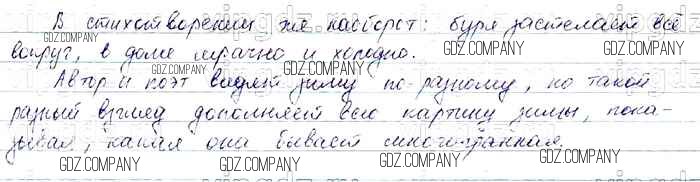 В стихотворении же наоборот: буря застелает всё
вокруг, в доме мрачно и холодно.
Автор и поэт видят зиму по-разному, но такой
разный взгляд дополняет всю картину зимы, пока-
зывая, какая она бывает многогранная.
GDZ.COMPANY GDZ.COMPANY GDZ.COMPANY
GDZ.COMPANY GDZ.COMPANY GDZ.COMPANY GDZ.COMPANY
GDZ.COMPANY GDZ.COMPANY GDZ.COMPANY